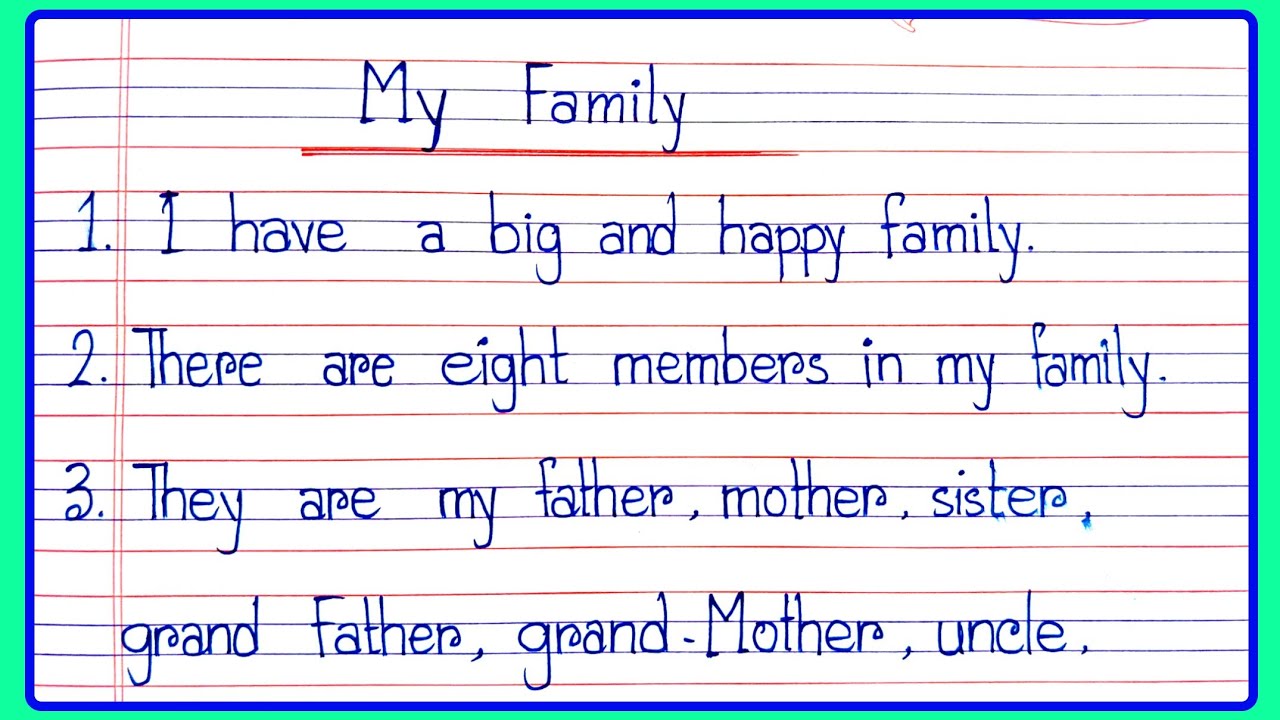 My Family
1. I have a big and happy family.
2. There are eight members in my family.
3. They are my father, mother, sister,
grand Father, grand-Mother, uncle,